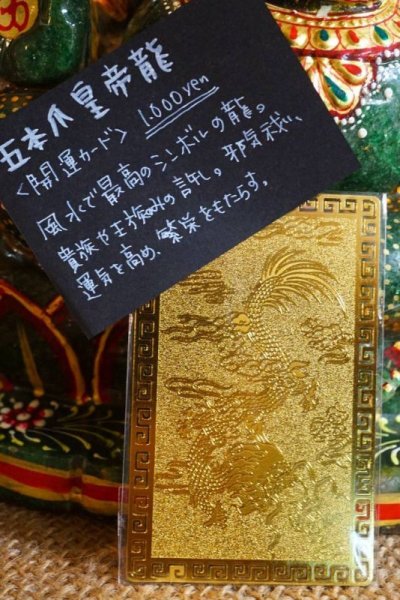 五本爪皇帝龍
<開運カード> 1.600yen
風水で最高のシンボルの龍。
貴族や王族のみの許し。邪気祓い、
運気を高め、繁栄をもたらす。
ॐ